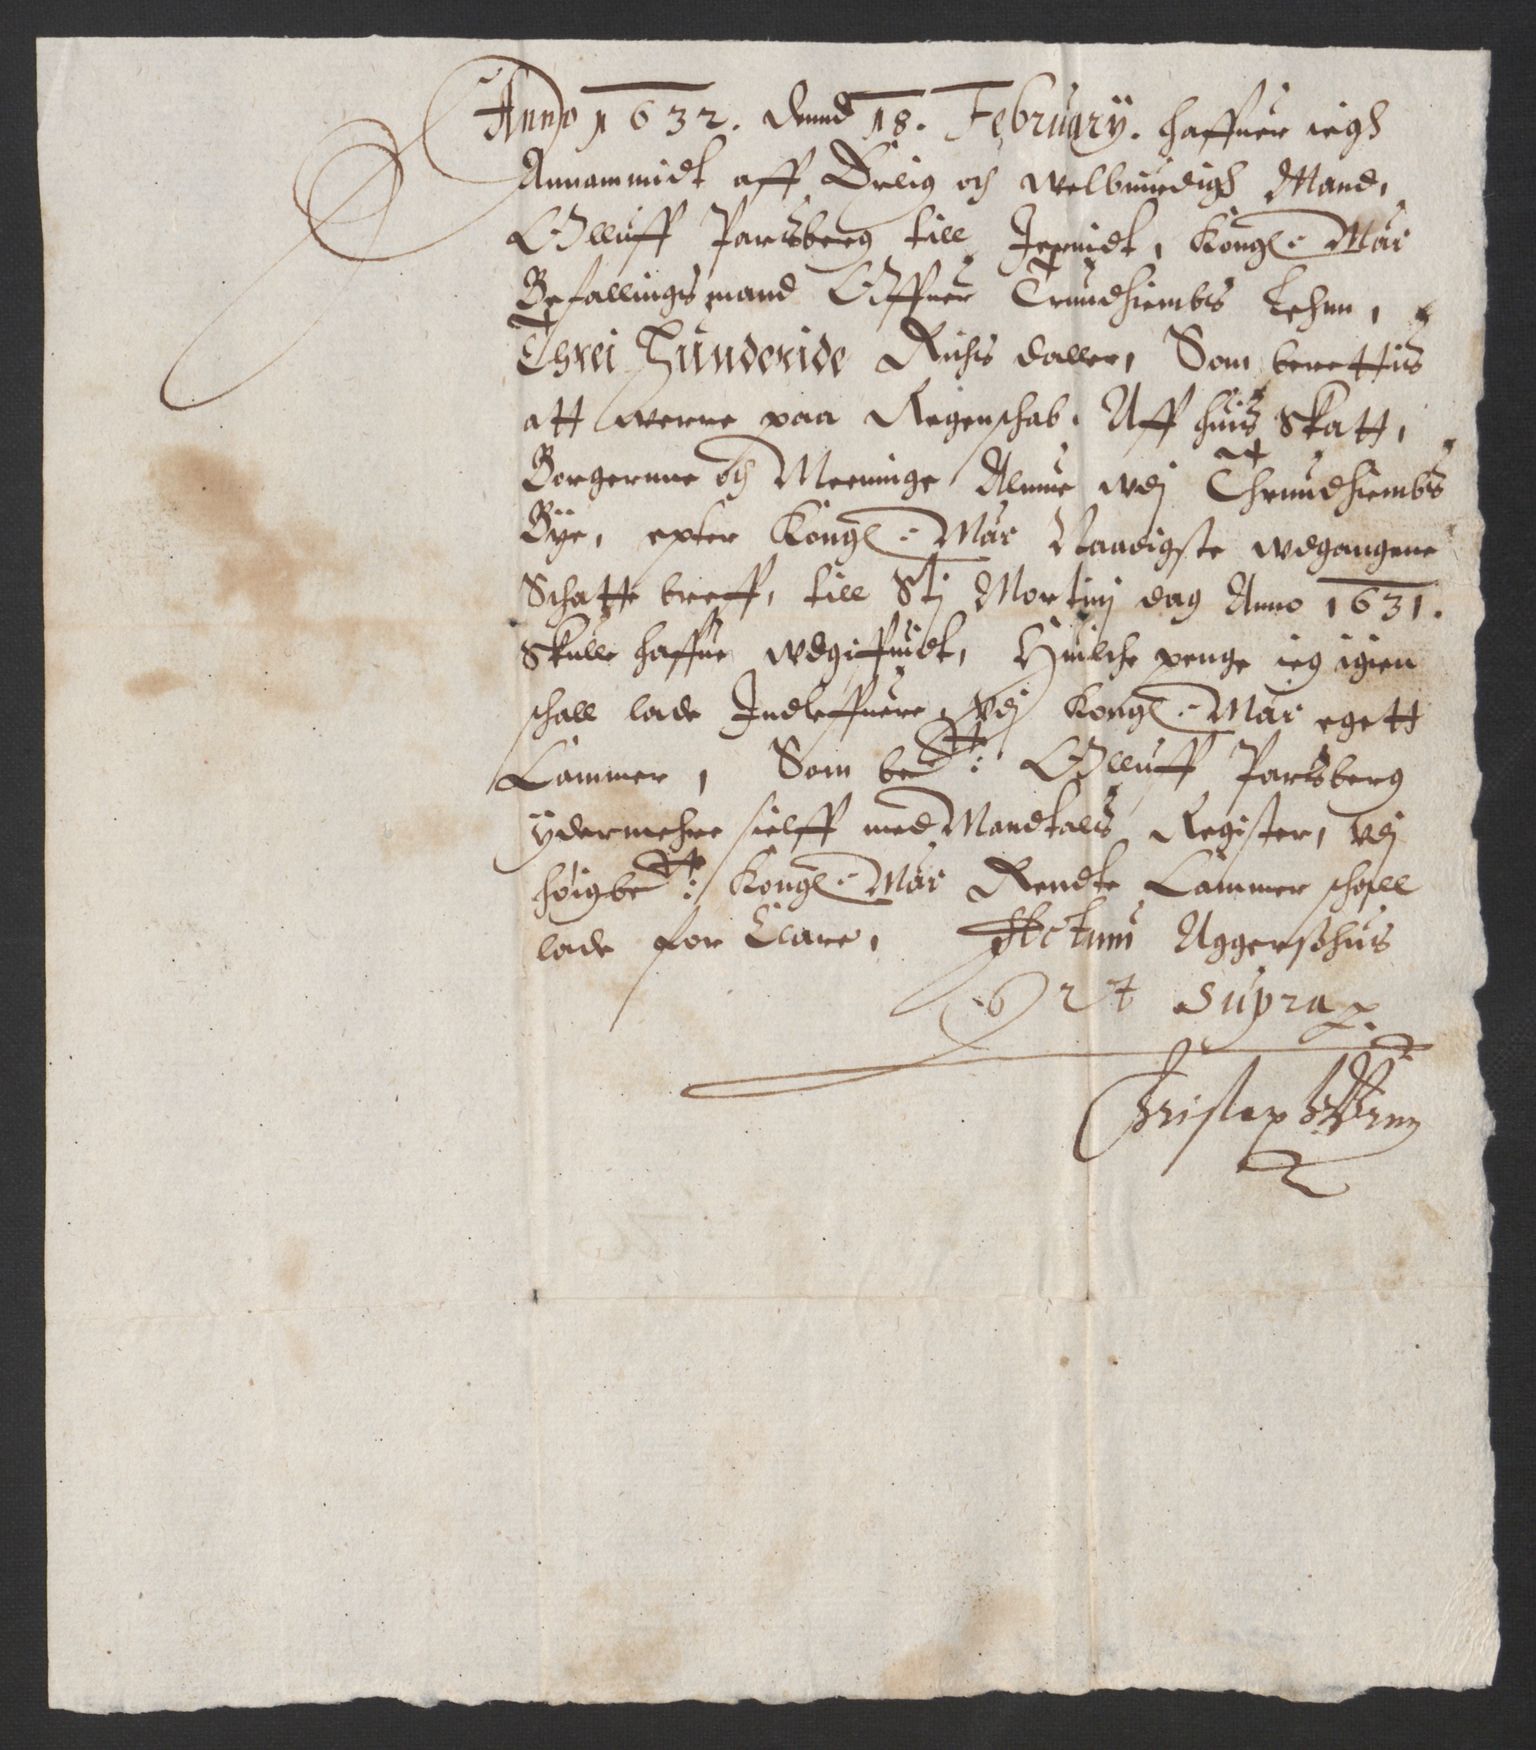 Anno 1632. dennd 18. Februarÿ. haffuer iegh
Annammidt aff Erlig och welbiurdigh Mand,
Olluff Parsberg till Jernidt, Kongl: Maÿs
Befallings mand Offuer Trundhiembs Lehnn,
Threi Hunderide Richs daller, Som berettis
att werre paa Regenschab. Aff huis Skatt,
Borgernne och Meeninge Almue wdj Thrundhiembs
Bÿe, epter Kongl: Maÿs Naadigste wdgangene
Schatte breff, till Stj Mortinj dag Anno 1631.
Skulle haffue wdgiffuidt, Huilche penge ieg igien
schall lade Indleffuere, wdj Kongl: Maÿs egett
Cammer, Som bete: Olluff Parsberg
ÿdermehre sielff med Mandtals Register, wdj
høigbete: Kongl: Maÿs Rendte Cammer schall
lade for Clare, Actum Aggershuus
Ut Supra
Christop Urne